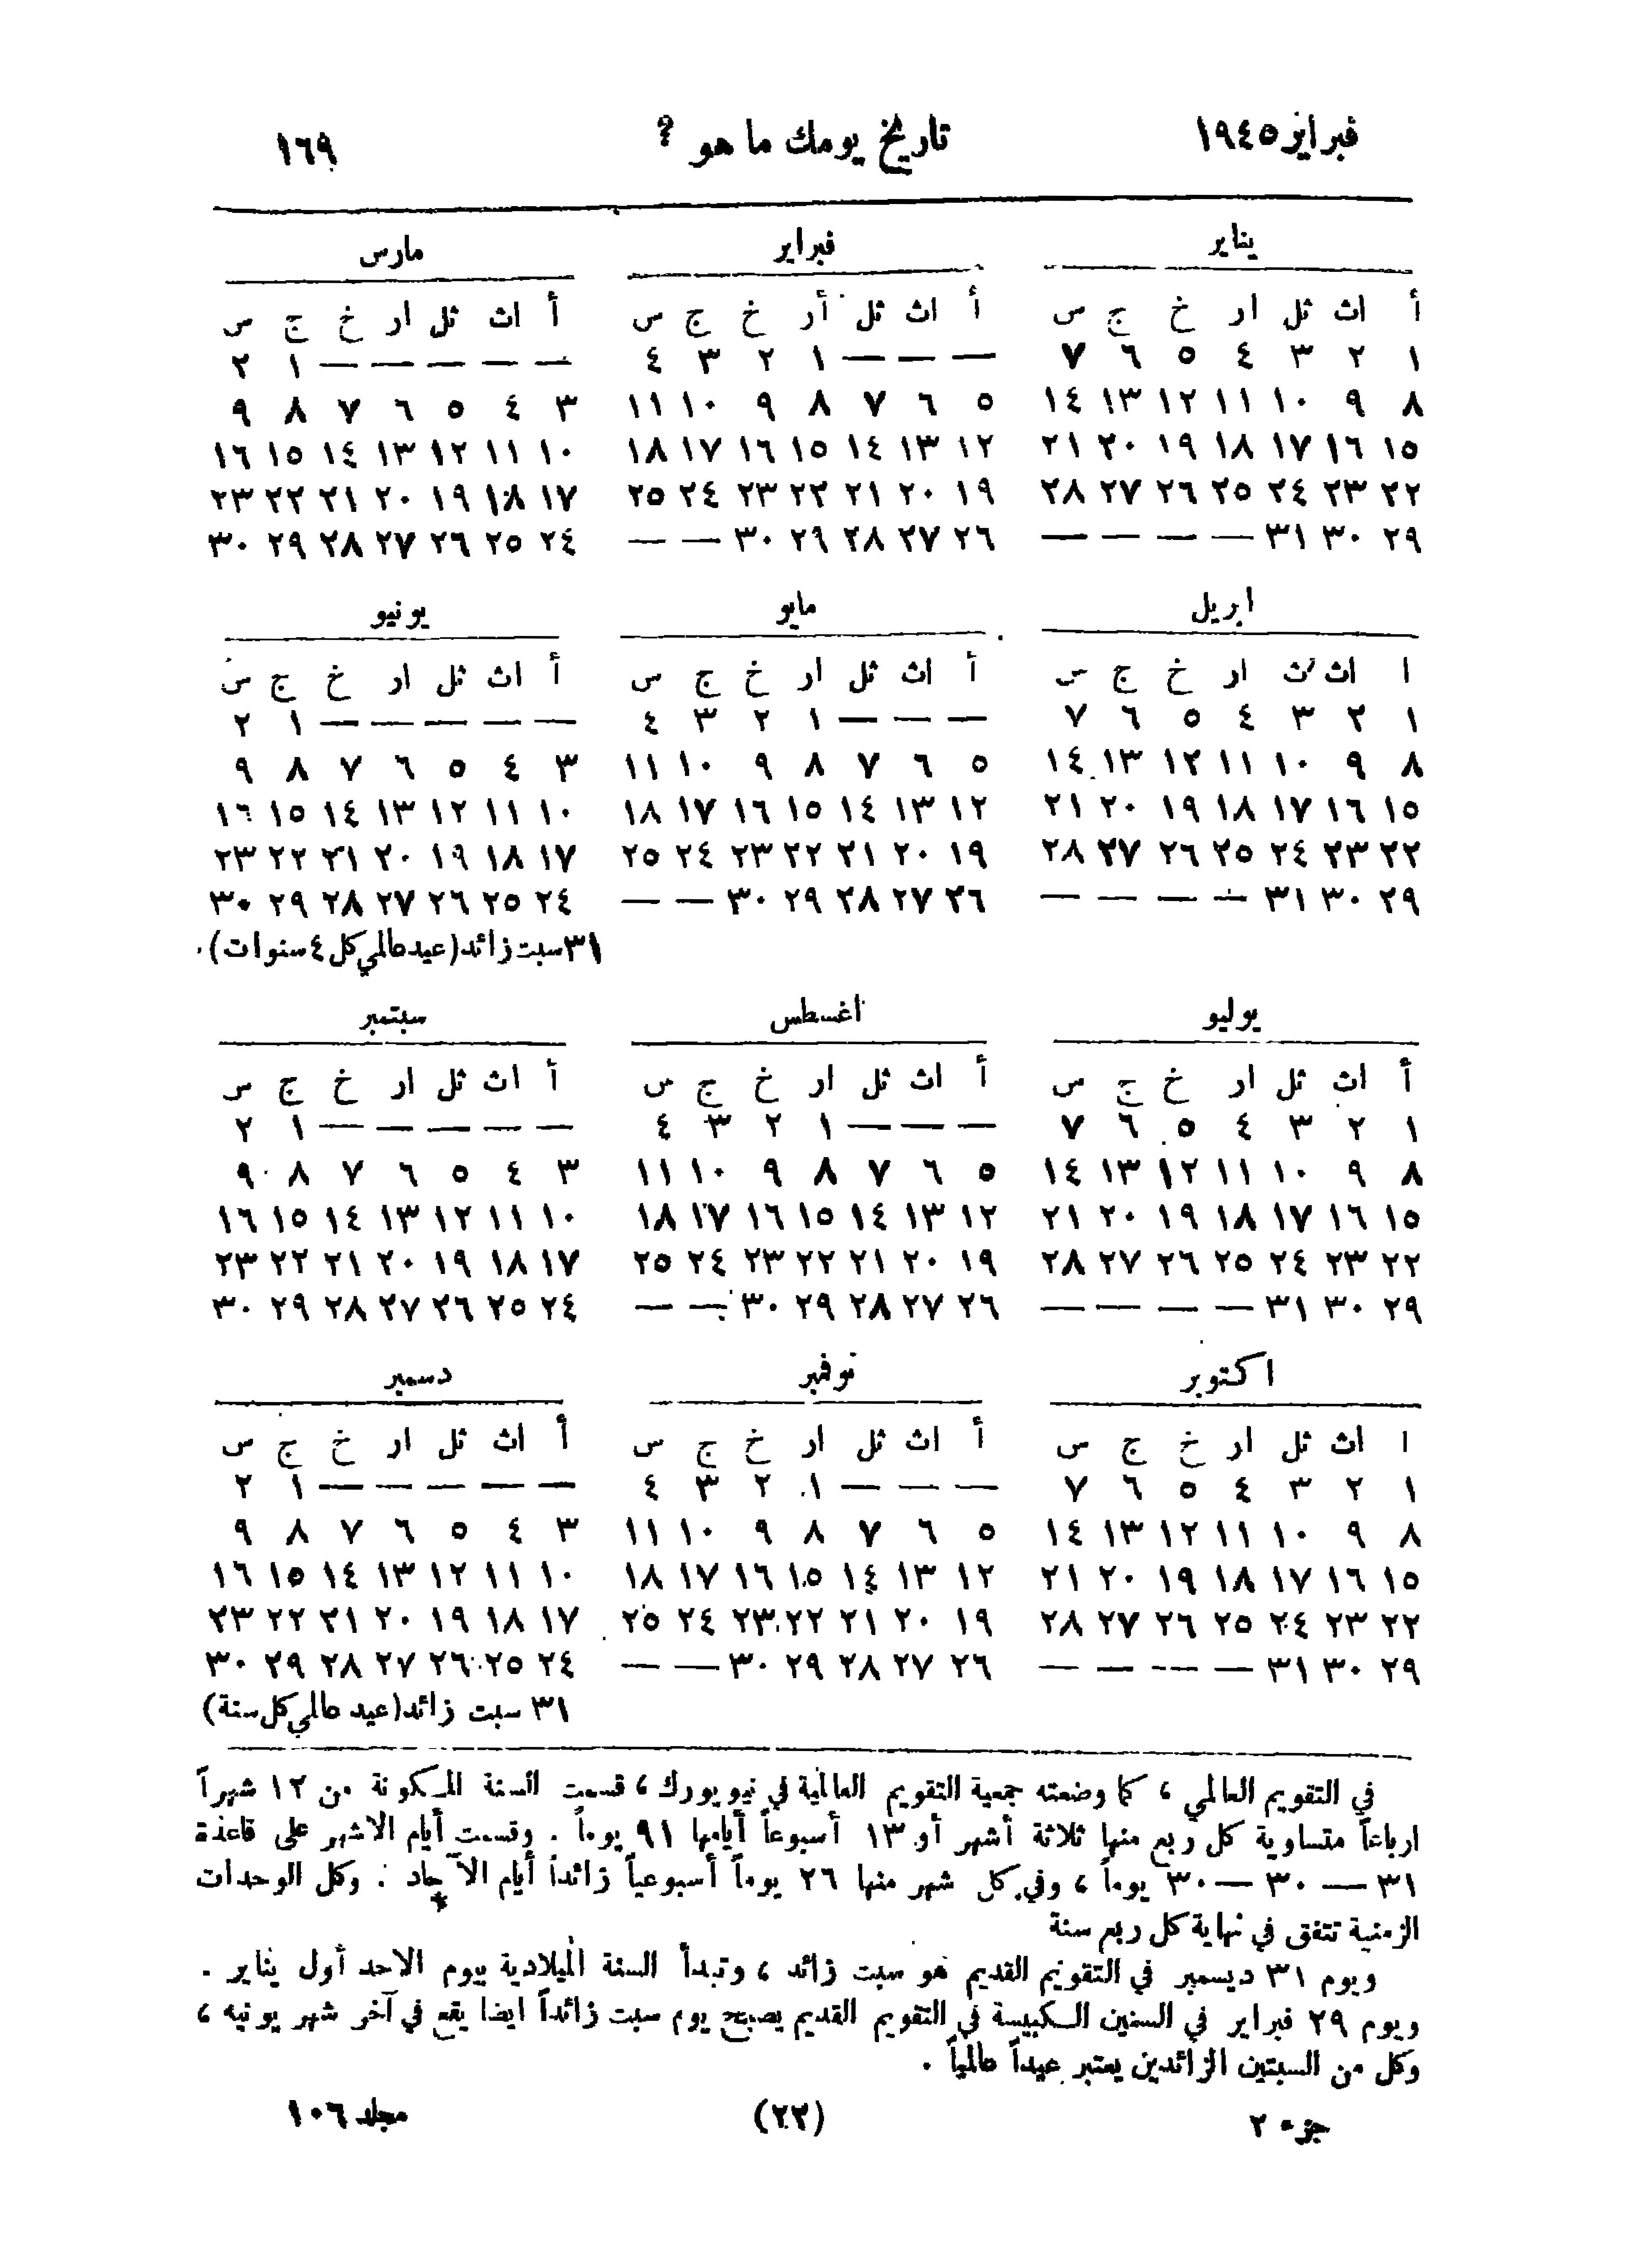 فبراير ١٩٤٥ تاريخ يومك ما هو ? ١٦٩
يناير
أ اث ثل ار خ ج س
١ ٢ ٣ ٤ ٥ ٦ ٧
٨ ٩ ١٠ ١١ ١٢ ١٣ ١٤
١٥ ١٦ ١٧ ١٨ ١٩ ٢٠ ٢١
٢٢ ٢٣ ٢٤ ٢٥ ٢٦ ٢٧ ٢٨
٢٩ ٣٠ ٣١ — — — —
فبراير
أ اث ثل أر خ ج س
— — — ١ ٢ ٣ ٤
٥ ٦ ٧ ٨ ٩ ١٠ ١١
١٢ ١٣ ١٤ ١٥ ١٦ ١٧ ١٨
١٩ ٢٠ ٢١ ٢٢ ٢٣ ٢٤ ٢٥
٢٦ ٢٧ ٢٨ ٢٩ ٣٠ — —
مارس
أ اث ثل ار خ ج س
— — — — — ١ ٢
٣ ٤ ٥ ٦ ٧ ٨ ٩
١٠ ١١ ١٢ ١٣ ١٤ ١٥ ١٦
١٧ ١٨ ١٩ ٢٠ ٢١ ٢٢ ٢٣
٢٤ ٢٥ ٢٦ ٢٧ ٢٨ ٢٩ ٣٠
ابريل
ا اث ث ار خ ج س
١ ٢ ٣ ٤ ٥ ٦ ٧
٨ ٩ ١٠ ١١ ١٢ ١٣ ١٤
١٥ ١٦ ١٧ ١٨ ١٩ ٢٠ ٢١
٢٢ ٢٣ ٢٤ ٢٥ ٢٦ ٢٧ ٢٨
٢٩ ٣٠ ٣١ — — — —
مايو
أ اث ثل ار خ ج س
— — — ١ ٢ ٣ ٤
٥ ٦ ٧ ٨ ٩ ١٠ ١١
١٢ ١٣ ١٤ ١٥ ١٦ ١٧ ١٨
١٩ ٢٠ ٢١ ٢٢ ٢٣ ٢٤ ٢٥
٢٦ ٢٧ ٢٨ ٢٩ ٣٠ — —
يونيو
أ اث ثل ار خ ج س
— — — — — ١ ٢
٣ ٤ ٥ ٦ ٧ ٨ ٩
١٠ ١١ ١٢ ١٣ ١٤ ١٥ ١٦
١٧ ١٨ ١٩ ٢٠ ٢١ ٢٢ ٢٣
٢٤ ٢٥ ٢٦ ٢٧ ٢٨ ٢٩ ٣٠
٣١ سبت زائد (عيد عالمي كل ٤ سنوات).
يوليو
أ اث ثل ار خ ج س
١ ٢ ٣ ٤ ٥ ٦ ٧
٨ ٩ ١٠ ١١ ١٢ ١٣ ١٤
١٥ ١٦ ١٧ ١٨ ١٩ ٢٠ ٢١
٢٢ ٢٣ ٢٤ ٢٥ ٢٦ ٢٧ ٢٨
٢٩ ٣٠ ٣١ — — — —
اغسطس
أ اث ثل ار خ ج س
— — — ١ ٢ ٣ ٤
٥ ٦ ٧ ٨ ٩ ١٠ ١١
١٢ ١٣ ١٤ ١٥ ١٦ ١٧ ١٨
١٩ ٢٠ ٢١ ٢٢ ٢٣ ٢٤ ٢٥
٢٦ ٢٧ ٢٨ ٢٩ ٣٠ — —
سبتمبر
أ اث ثل ار خ ج س
— — — — — ١ ٢
٣ ٤ ٥ ٦ ٧ ٨ ٩
١٠ ١١ ١٢ ١٣ ١٤ ١٥ ١٦
١٧ ١٨ ١٩ ٢٠ ٢١ ٢٢ ٢٣
٢٤ ٢٥ ٢٦ ٢٧ ٢٨ ٢٩ ٣٠
اكتوبر
ا اث ثل ار خ ج س
١ ٢ ٣ ٤ ٥ ٦ ٧
٨ ٩ ١٠ ١١ ١٢ ١٣ ١٤
١٥ ١٦ ١٧ ١٨ ١٩ ٢٠ ٢١
٢٢ ٢٣ ٢٤ ٢٥ ٢٦ ٢٧ ٢٨
٢٩ ٣٠ ٣١ — — — —
نوفمبر
أ اث ثل ار خ ج س
— — — ١ ٢ ٣ ٤
٥ ٦ ٧ ٨ ٩ ١٠ ١١
١٢ ١٣ ١٤ ١٥ ١٦ ١٧ ١٨
١٩ ٢٠ ٢١ ٢٢ ٢٣ ٢٤ ٢٥
٢٦ ٢٧ ٢٨ ٢٩ ٣٠ — —
دسمبر
أ اث ثل ار خ ج س
— — — — — ١ ٢
٣ ٤ ٥ ٦ ٧ ٨ ٩
١٠ ١١ ١٢ ١٣ ١٤ ١٥ ١٦
١٧ ١٨ ١٩ ٢٠ ٢١ ٢٢ ٢٣
٢٤ ٢٥ ٢٦ ٢٧ ٢٨ ٢٩ ٣٠
٣١ سبت زائد (عيد عالمي كل سنة)
في التقويم العالمي ، كما وضعته جمعية التقويم العالمية في نيويورك ، قسمت السنة المكونة من ١٢ شهراً
ارباعاً متساوية كل ربع منها ثلاثة أشهر أو ١٣ أسبوعاً أيامها ٩١ يوماً . وقسمت أيام الاشهر على قاعدة
٣١ — ٣٠ — ٣٠ يوماً ، وفي كل شهر منها ٢٦ يوماً أسبوعياً زائداً أيام الآحاد . وكل الوحدات
الزمنية تتفق في نهاية كل ربع سنة
ويوم ٣١ ديسمبر في التقويم القديم هو سبت زائد ، وتبدأ السنة الميلادية بيوم الاحد أول يناير .
ويوم ٢٩ فبراير في السنين الكبيسة في التقويم القديم يصبح يوم سبت زائداً ايضا يقع في آخر شهر يونيه ،
وكل من السبتين الزائدين يعتبر عيداً عالمياً .
جزء ٢ (٢٢) مجلد ١٠٦